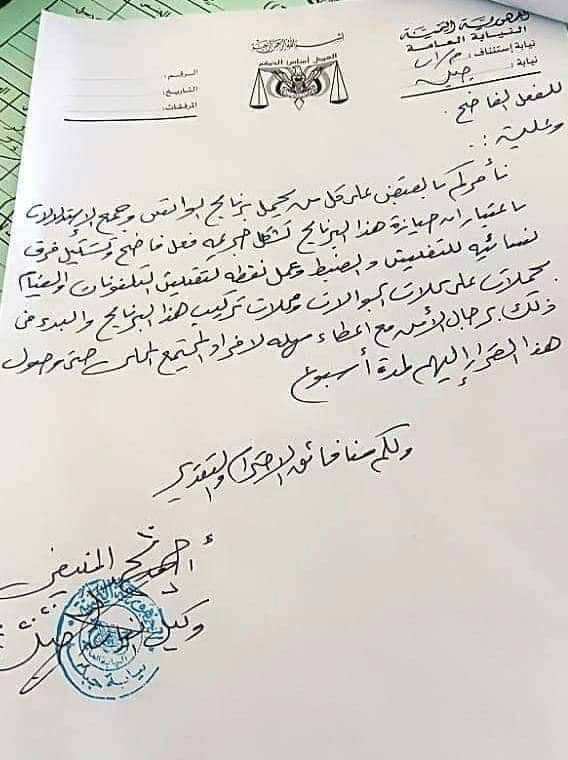 الجمهورية اليمنية
النيابة العامة
نيابة استئناف:
نيابة: جبلة
بسم الله الرحمن الرحيم
العدل أساس الحكم
الرقم:
التاريخ:
المرفقات:
للفعل الفاضح.
وعليه:
نأمركم بالقبض على كل من يحمل برنامج الواتس وجمع الاستدلالات
باعتبار ان حيازة هذا البرنامج تشكل جريمة فعل فاضح وتشكيل فرق
نسائيه للتفتيش والضبط وعمل نقطه لتفتيش التلفونات والقيام
بحملات على محلات الجوالات ومحلات تركيب هذا البرنامج والبدء في
ذلك برجال الأمن مع اعطاء مهله لافراد المجتمع المحلي حتى وصول
هذا القرار إليهم لمدة أسبوع
ولكم منا فائق الاحترام والتقدير
وكيل نيابة